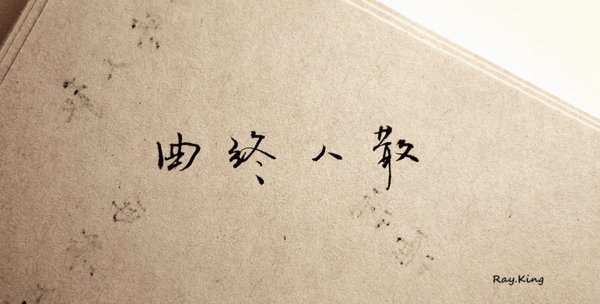 曲终人散
Ray.King